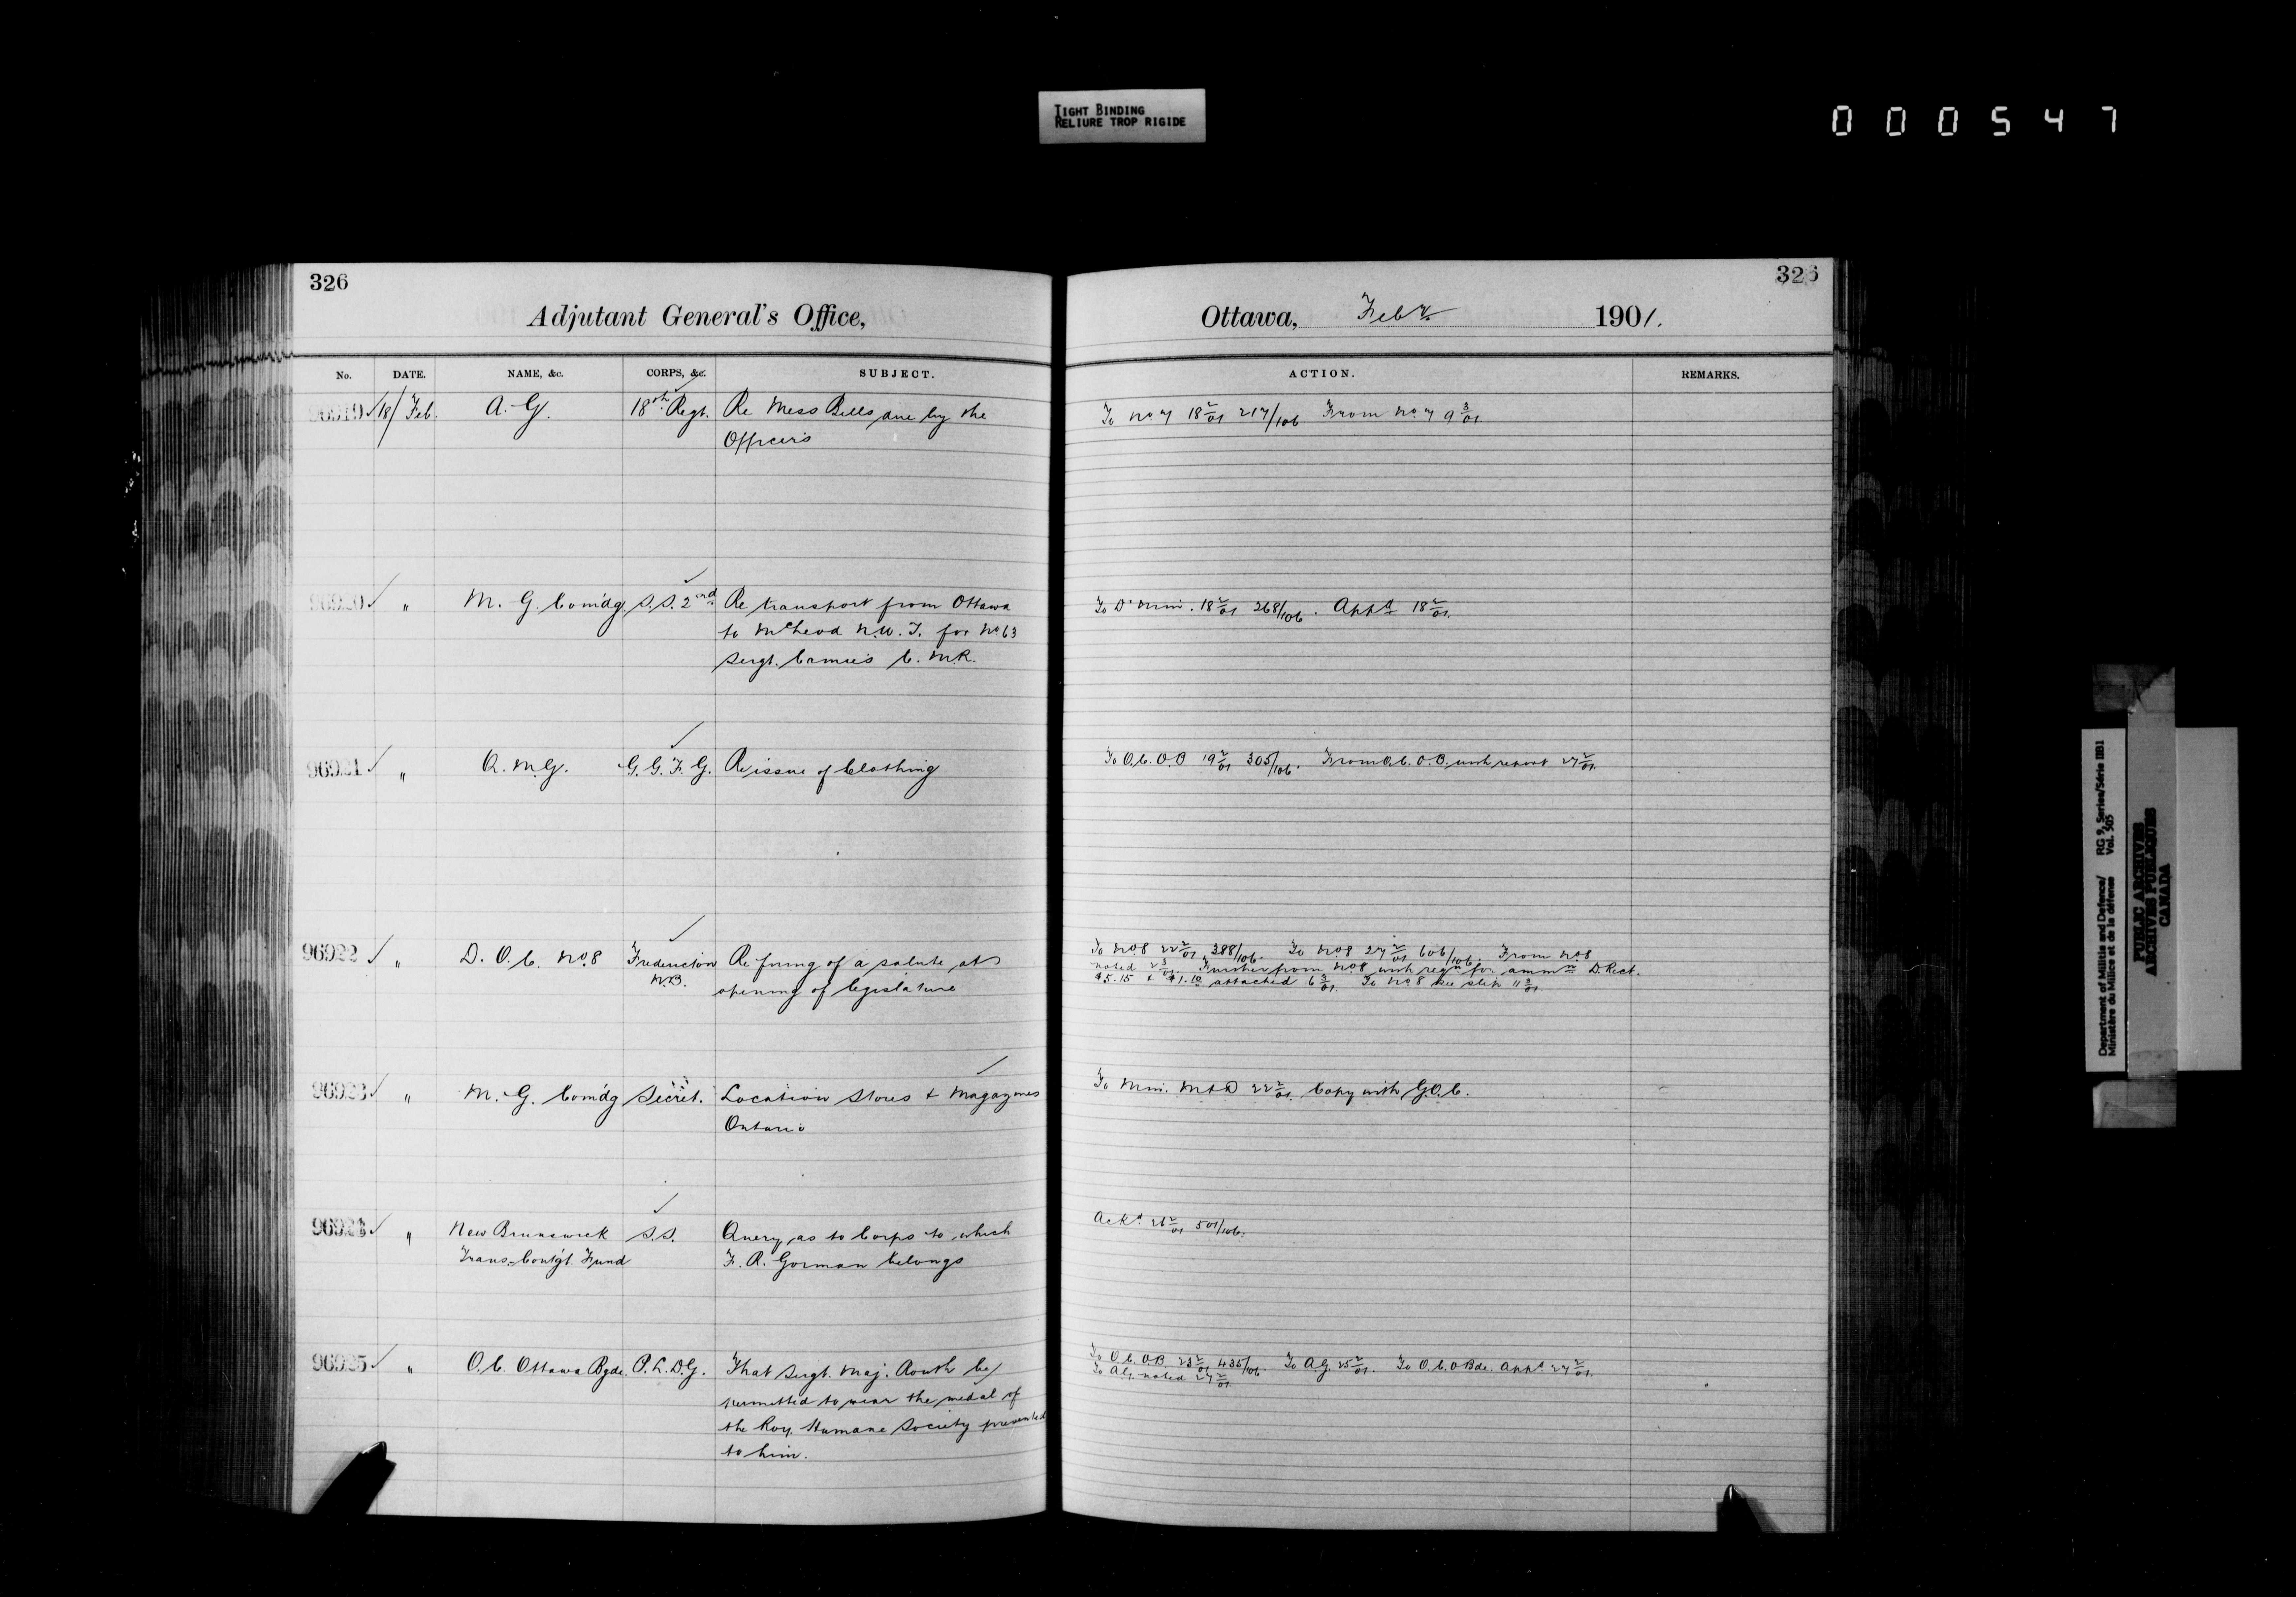 TIGHT BINDING
RELIURE TROP RIGIDE
000547
326
Adjutant General's Office,
No. DATE. NAME, &c. CORPS, &c. SUBJECT.
96919 18/Feb. A.G. 18th Regt. Re Mess Bills due by the
Officers
96920 " M. G. Com'dg. S.S. 2nd Re transport from Ottawa
to McLeod N.W.T. for No 63
Sergt. C. M.R.
96921 " Q.M.G. G.G.F.G. Re issue of Clothing
96922 " D.O.C. No. 8 Fredericton Re firing of a salute at
N.B. opening of legislature
96923 " M. G. Com'dg Secret. Location Stores & Magazines
Ontario
96924 " New Brunswick S.S. Query as to Corps to which
Trans. Contgt. Fund F. R. Gorman belongs
96925 " O.C. Ottawa Bgde. P.L.D.G. That Sergt. Maj. Routh be
permitted to wear the medal of
the Roy. Humane Society presented
to him.
326
Ottawa, Feby 1901.
ACTION. REMARKS.
To No 7 18 2/01 217/106 From No. 7 9 3/01
To D. Min. 18 2/01 268/106. Appd 18 2/01.
To O.C. O.B 19 2/01 305/106. From O.C. O.B. with report 27 2/01.
To No.8 22 2/01 388/106. To No.8 27 2/01 606/106. From No.8
noted 2 3/01. Further from No.8 with reqn for ammn D. Rect.
$5.15 & $1.10 attached 6 3/01. To No.8 see slip 11 3/01.
To Min. M&D 22 2/01. Copy with G.O.C.
Ackd 26 2/01 501/106.
To O.C. O.B. 23 2/01 435/106. To A.G. 25 2/01. To O.C. O Bde. appd 27 2/01.
To A.G. noted 27 2/01
Department of Militia and Defence/ RG 9, Series/Série IIB1
Ministère du Milice et de la défense Vol. 505
PUBLIC ARCHIVES
ARCHIVES PUBLIQUES
CANADA